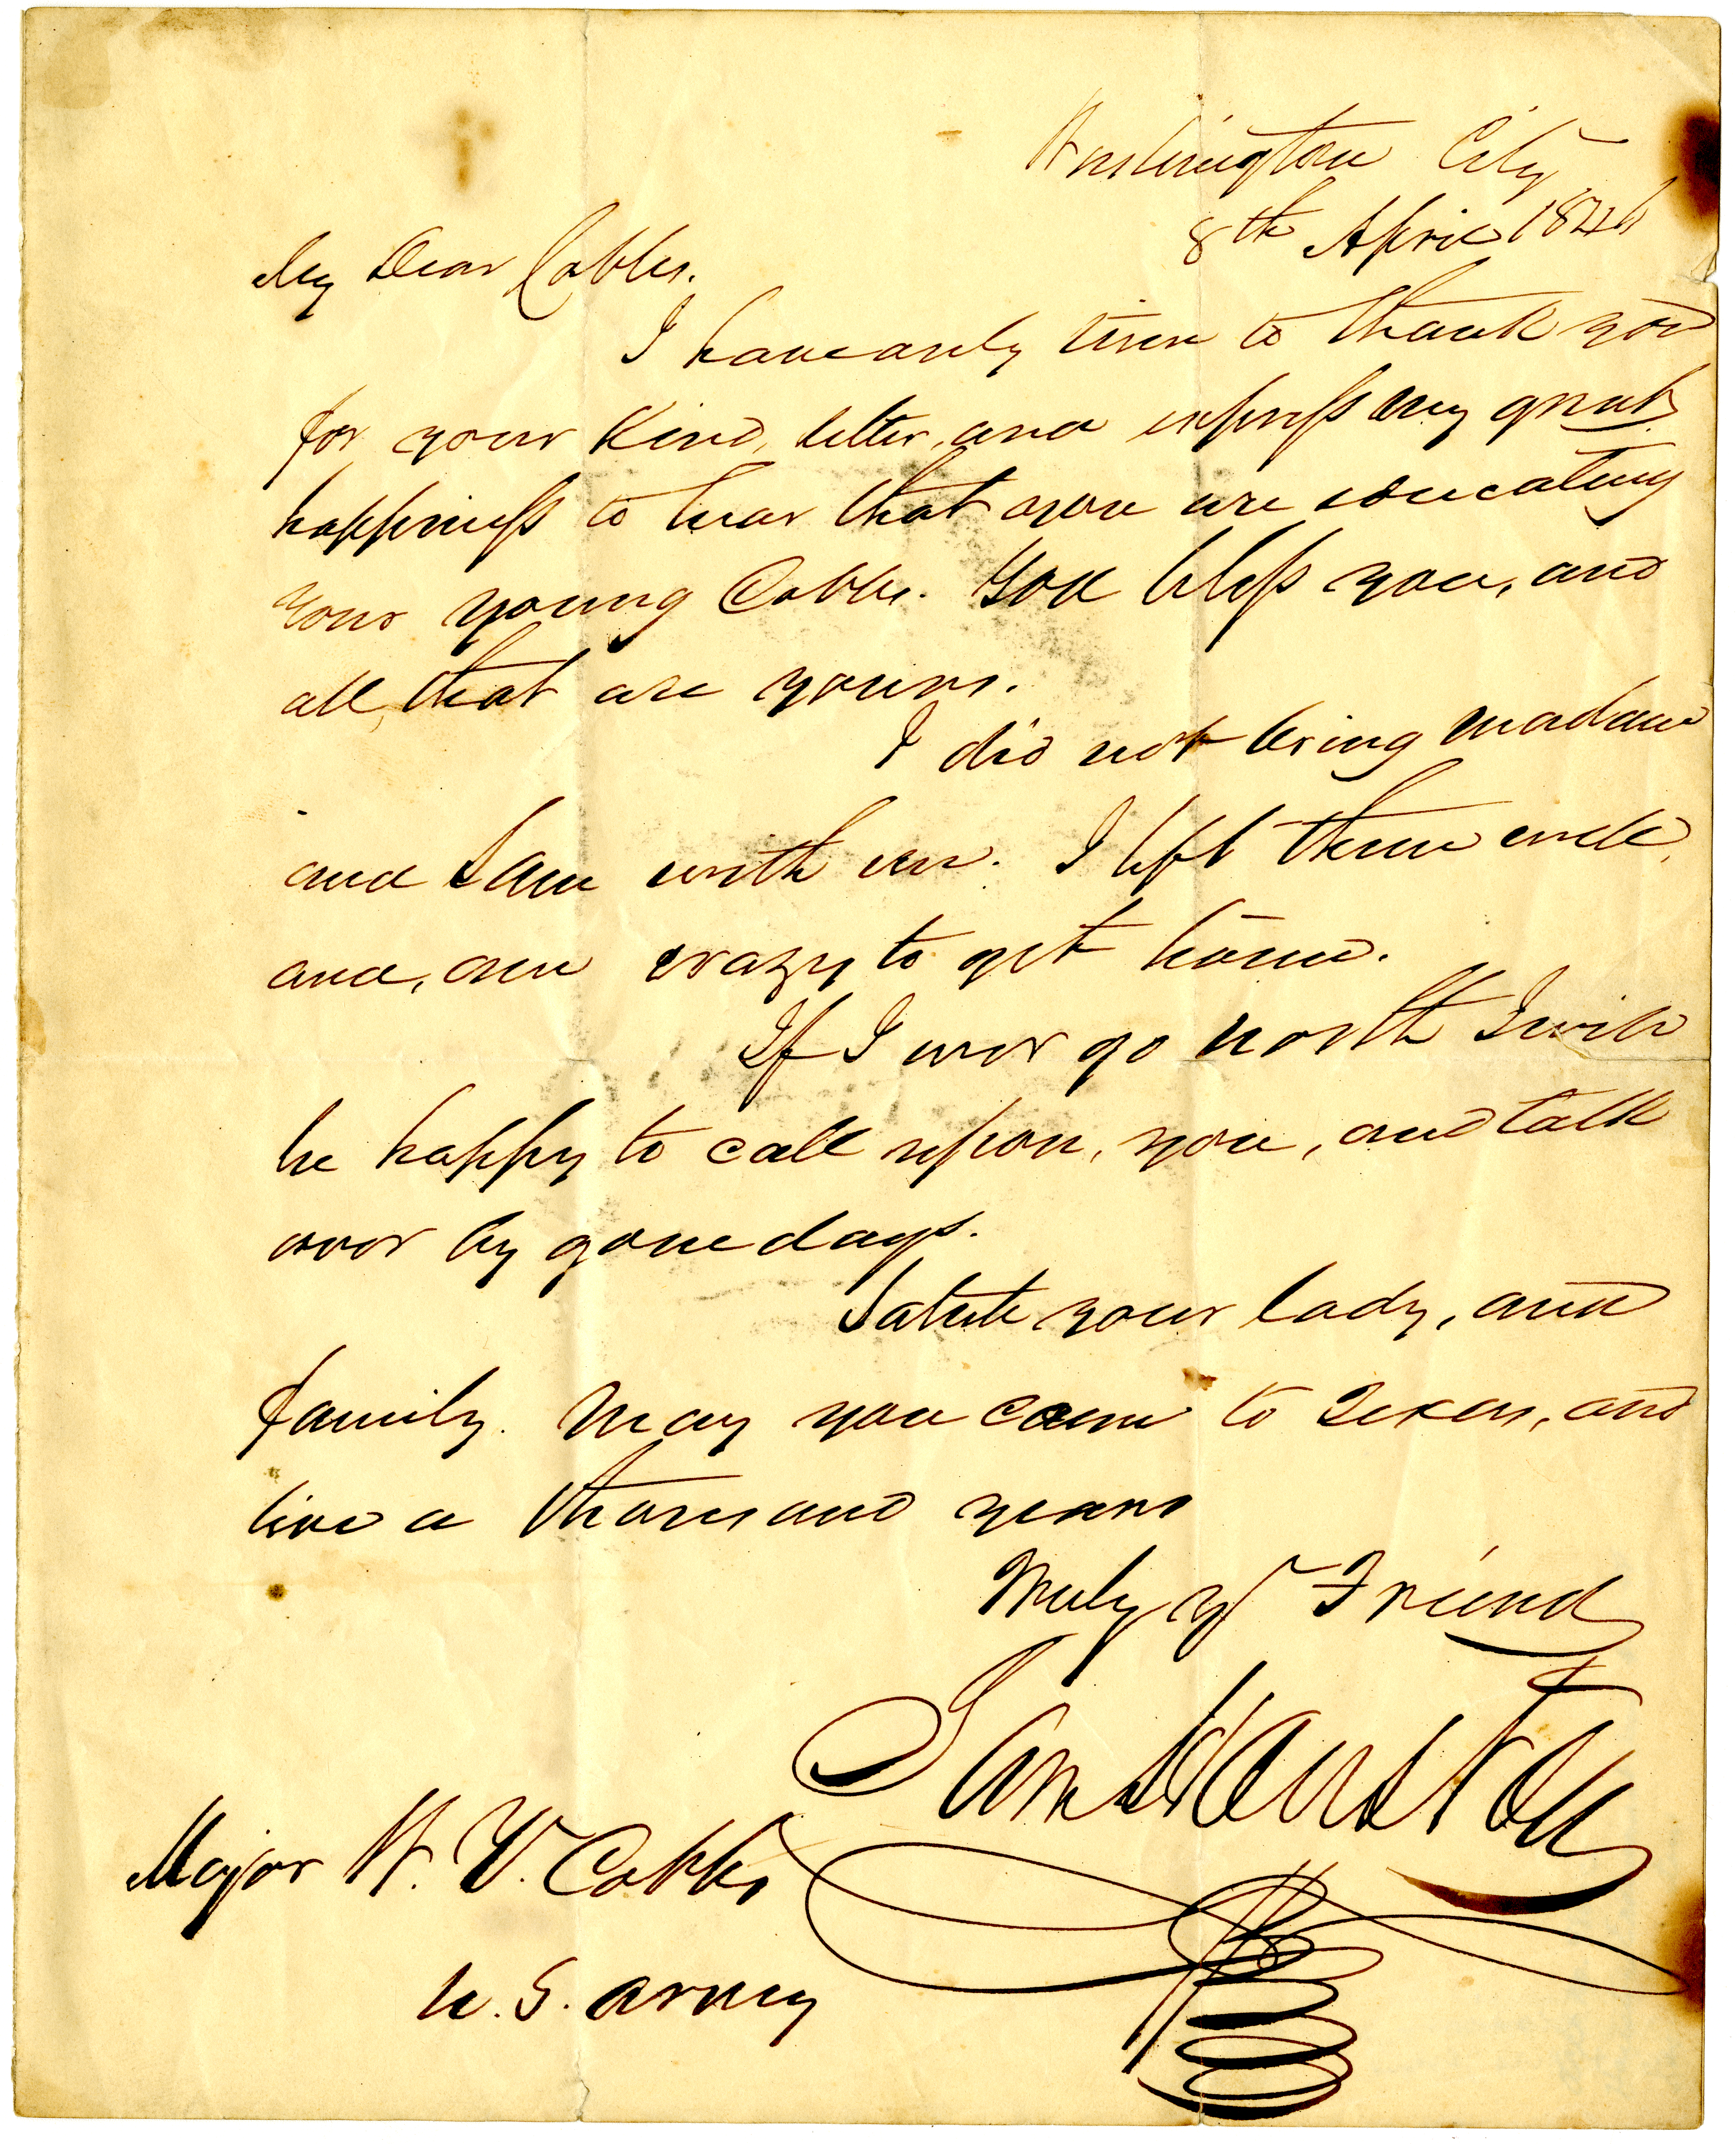 Washington City
8th April 1846
My Dear Cobbs.
I have only time to thank you
for your kind, letter, and express my great
happiness to hear that you are educating
your young Cobbs. God bless you, and
all, that are yours.
I did not bring madam
and Sam with me. I left them well,
and, am crazy to get home.
If I ever go north I will
be happy to call upon, you, and talk
over by gone days.
Salute your lady, and
family. May you come to Texas, and
live a thousand years
Truly yr Friend
Sam Houston
Major W. V. Cobbs
U. S. Army